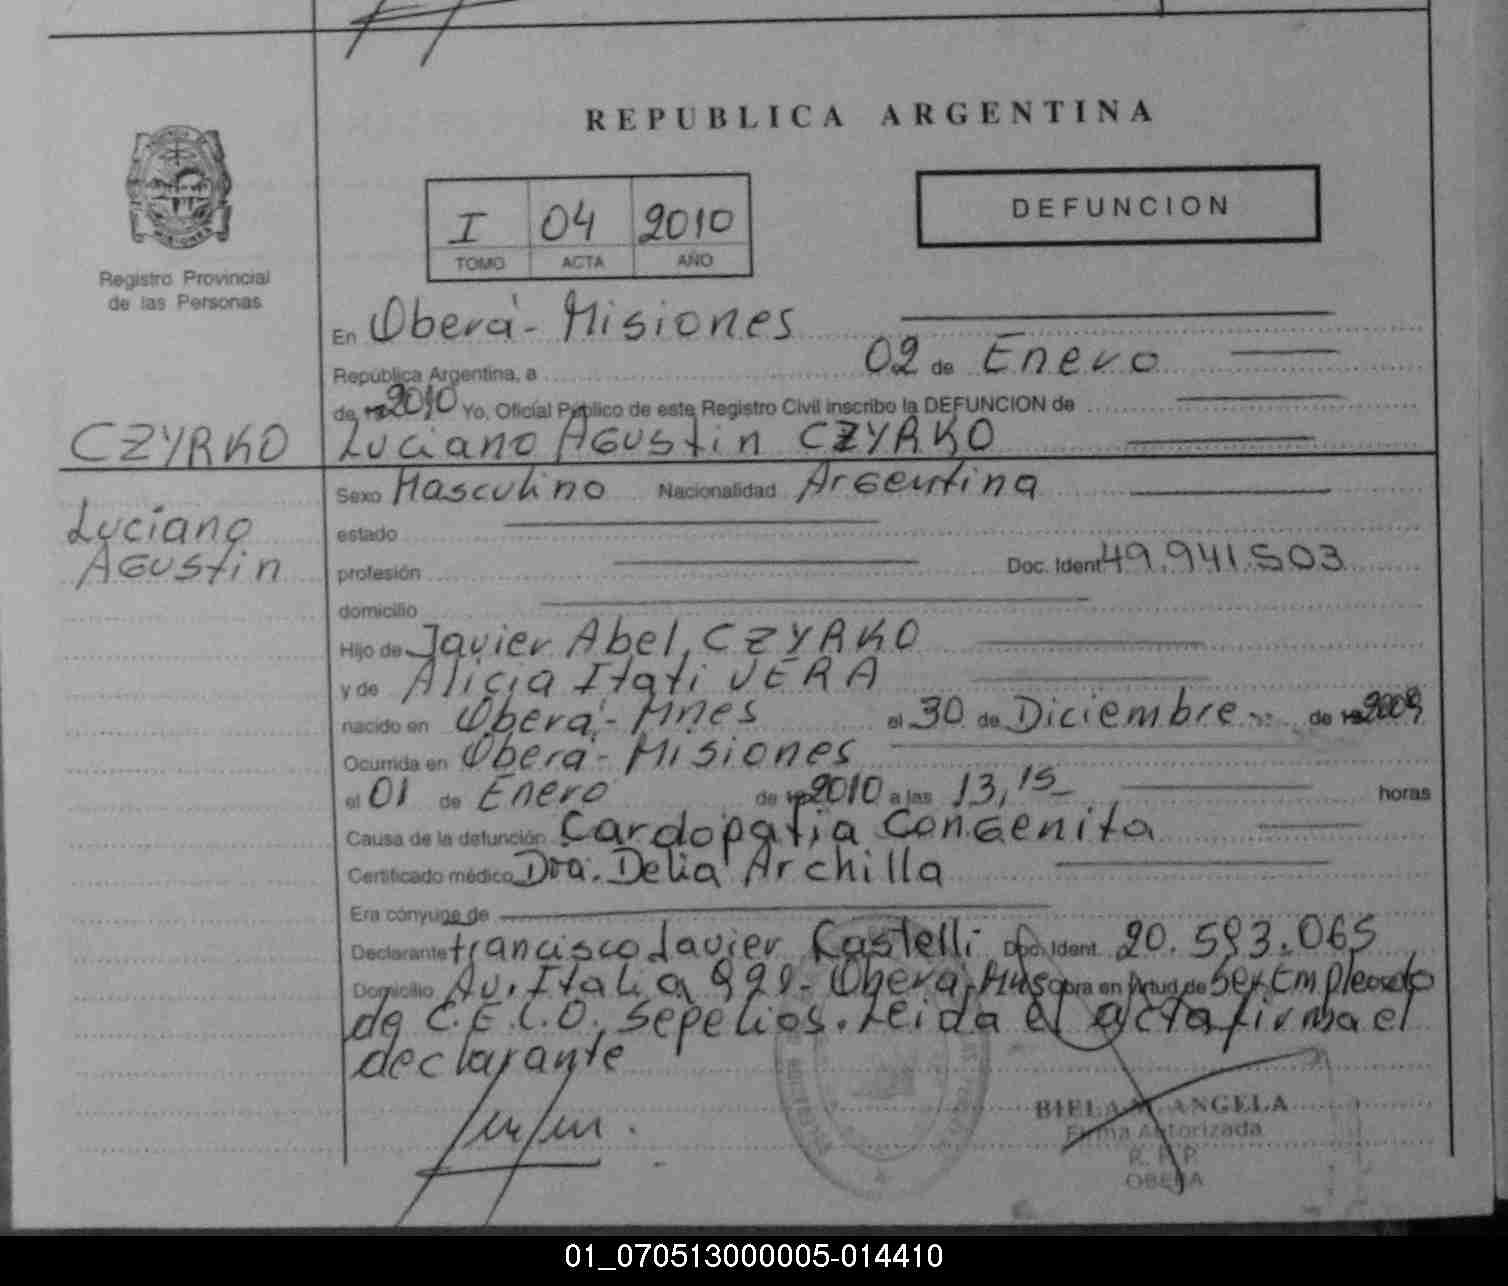 REPUBLICA ARGENTINA
I 04 2010
TOMO ACTA AÑO
DEFUNCION
Registro Provincial
de las Personas
En Oberá - Misiones
República Argentina, a 02 de Enero
de 2010 Yo, Oficial Público de este Registro Civil inscribo la DEFUNCION de
CZYRKO
Luciano Agustin CZYRKO
Luciano
Agustin
Sexo Masculino Nacionalidad Argentina
estado
profesión Doc. Ident 49.941.503
domicilio
Hijo de Javier Abel, CZYRKO
y de Alicia Itati VERA
nacido en Oberá - Mnes el 30 de Diciembre de 2009
Ocurrida en Oberá - Misiones
el 01 de Enero de 2010 a las 13,15 horas
Causa de la defunción Cardopatia Congenita
Certificado médico Dra. Delia Archilla
Era cónyuge de
Declarante Francisco Javier Castelli Doc. Ident. 20.593.065
Domicilio Av. Italia - Oberá, Mns Obra en virtud de ser Empleado
de C.E.L.O. Sepelios. Leida el acta firma el
declarante
BIELA ANGELA
Firma Autorizada
R. P. P.
OBERA
01_070513000005-014410